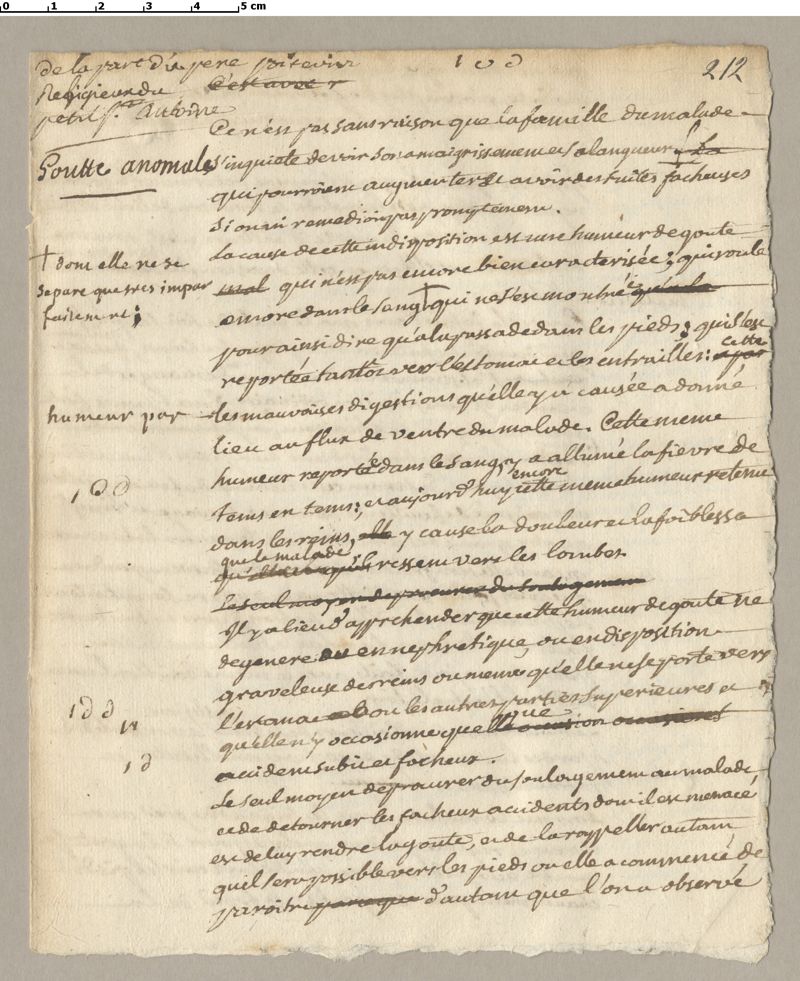 0 1 2 3 4 5 cm
de la part du pere poitevin
Religieux du
petit St Antoine
212
c'est avec r
Goutte anomale
Ce n'est pas sans raison que la famille du malade
s'inquiete de voir son amaigrissement et sa langueur, La
qui pourroient augmenter et avoir des suites facheuses
si on n'i remedioit pas promptement.
La cause de cette indisposition est une humeur de goute
mal qui n'est pas encore bien caracterisée; qui roule
† dont elle ne se
separe que tres impar
faitement;
encore dans le sang † qui ne s'est montrée qu'a la
pour ainsi dire qu'a la passade dans les pieds; qui s'est
reportée tantôt vers l'estomac et les entrailles: cette
humeur par
les mauvaises digestions qu'elle y a causée a donné
lieu au flux de ventre du malade. Cette meme
humeur reportée dans le sang, y a allumé la fievre de
tems en tems; et aujourd'huy encore cette meme humeur retenue
dans les reins, elle y cause la douleur et la foiblesse
que le malade
ressent vers les lombes.
Le seul moyen de procurer du soulagement
Il y a lieu d'apprehender que cette humeur de goute ne
degenere ou en nephretique, ou en disposition
graveleuse des reins ou meme qu'elle ne se porte vers
l'estomac et ou les autres parties superieures et
qu'elle n'y occasionne quelque
accident subit et facheux.
Le seul moyen de procurer du soulagement au malade,
et de detourner les facheux accidents dont il est menacé
est de luy rendre la goute, et de la rappeller autant
qu'il sera possible vers les pieds ou elle a commencé de
paroitre parceque d'autant que l'on a observé